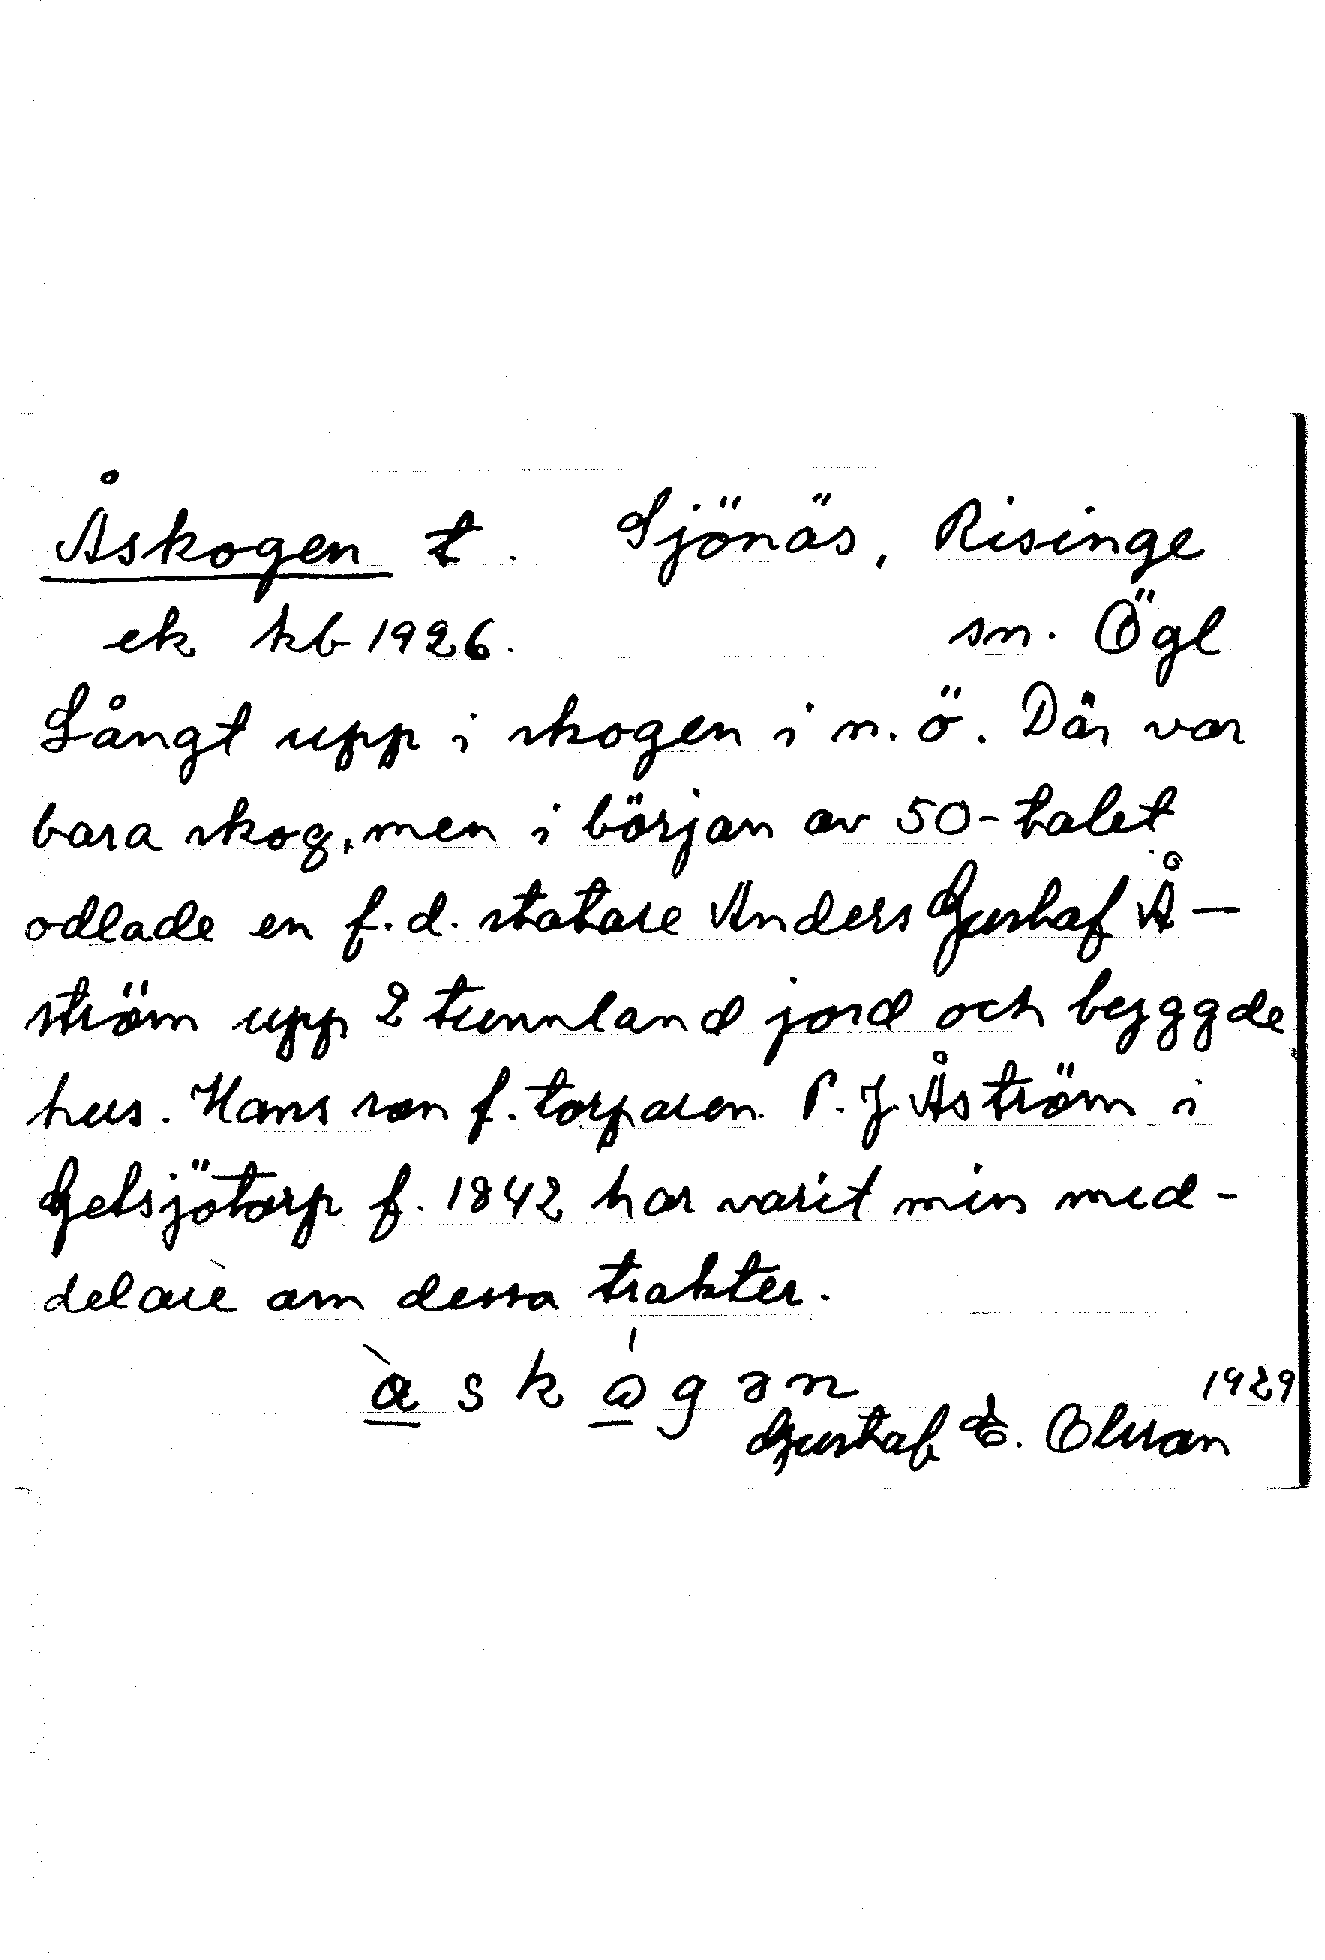 Åskogen t. Sjönäs, Risinge
ek kb 1926. sn. Ögl
Långt upp i skogen i n.ö. Där var
bara skog, men i början av 50-talet
odlade en f.d. statare Anders Gustaf Å-
ström upp 2 tunnland jord och byggde
hus. Hans son f. torparen P. J. Åström i
Gelsjötorp f. 1842 har varit min med-
delare om dessa trakter.
1929
Gustaf E. Olsson